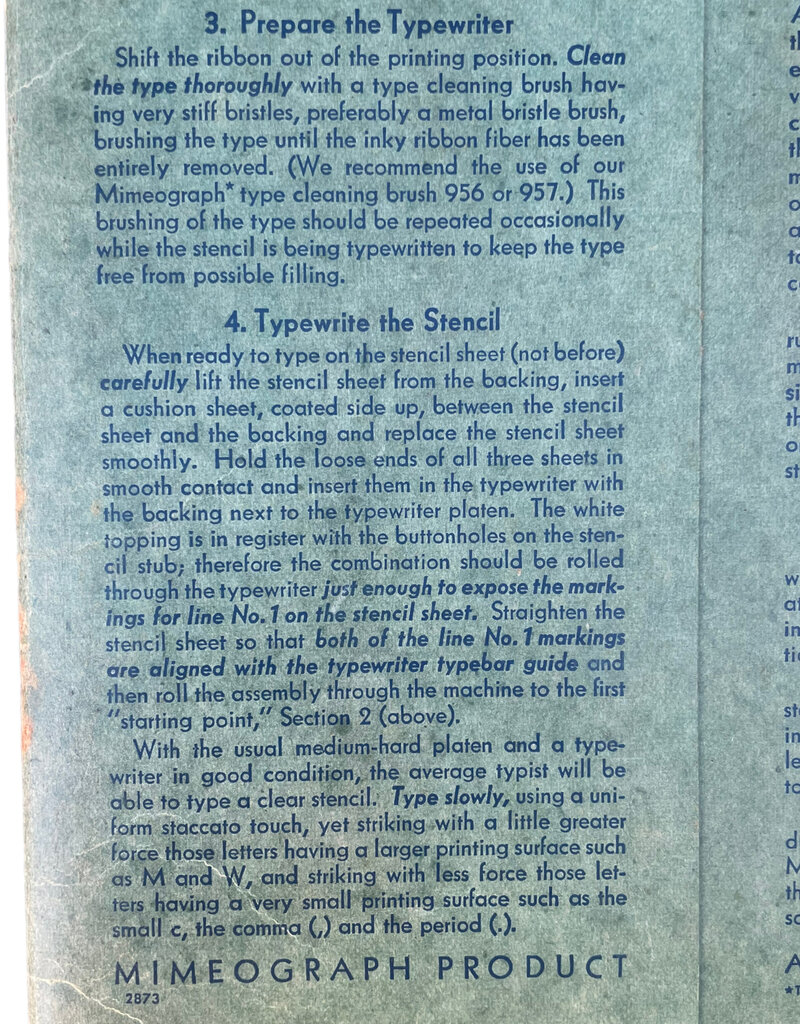 3. Prepare the Typewriter
Shift the ribbon out of the printing position. Clean
the type thoroughly with a type cleaning brush hav-
ing very stiff bristles, preferably a metal bristle brush,
brushing the type until the inky ribbon fiber has been
entirely removed. (We recommend the use of our
Mimeograph* type cleaning brush 956 or 957.) This
brushing of the type should be repeated occasionally
while the stencil is being typewritten to keep the type
free from possible filling.
4. Typewrite the Stencil
When ready to type on the stencil sheet (not before)
carefully lift the stencil sheet from the backing, insert
a cushion sheet, coated side up, between the stencil
sheet and the backing and replace the stencil sheet
smoothly. Hold the loose ends of all three sheets in
smooth contact and insert them in the typewriter with
the backing next to the typewriter platen. The white
topping is in register with the buttonholes on the sten-
cil stub; therefore the combination should be rolled
through the typewriter just enough to expose the mark-
ings for line No. 1 on the stencil sheet. Straighten the
stencil sheet so that both of the line No. 1 markings
are aligned with the typewriter typebar guide and
then roll the assembly through the machine to the first
"starting point," Section 2 (above).
With the usual medium-hard platen and a type-
writer in good condition, the average typist will be
able to type a clear stencil. Type slowly, using a uni-
form staccato touch, yet striking with a little greater
force those letters having a larger printing surface such
as M and W, and striking with less force those let-
ters having a very small printing surface such as the
small c, the comma (,) and the period (.).
MIMEOGRAPH PRODUCT
2873